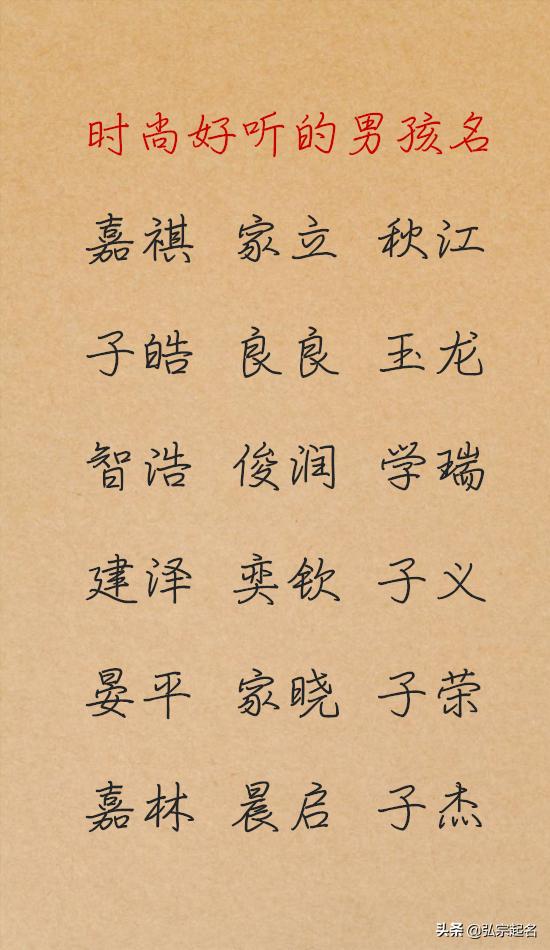 时尚好听的男孩名
嘉祺 家立 秋江
子皓 良良 玉龙
智浩 俊润 学瑞
建泽 奕钦 子义
晏平 家晓 子荣
嘉林 晨启 子杰
头条 @弘宗起名